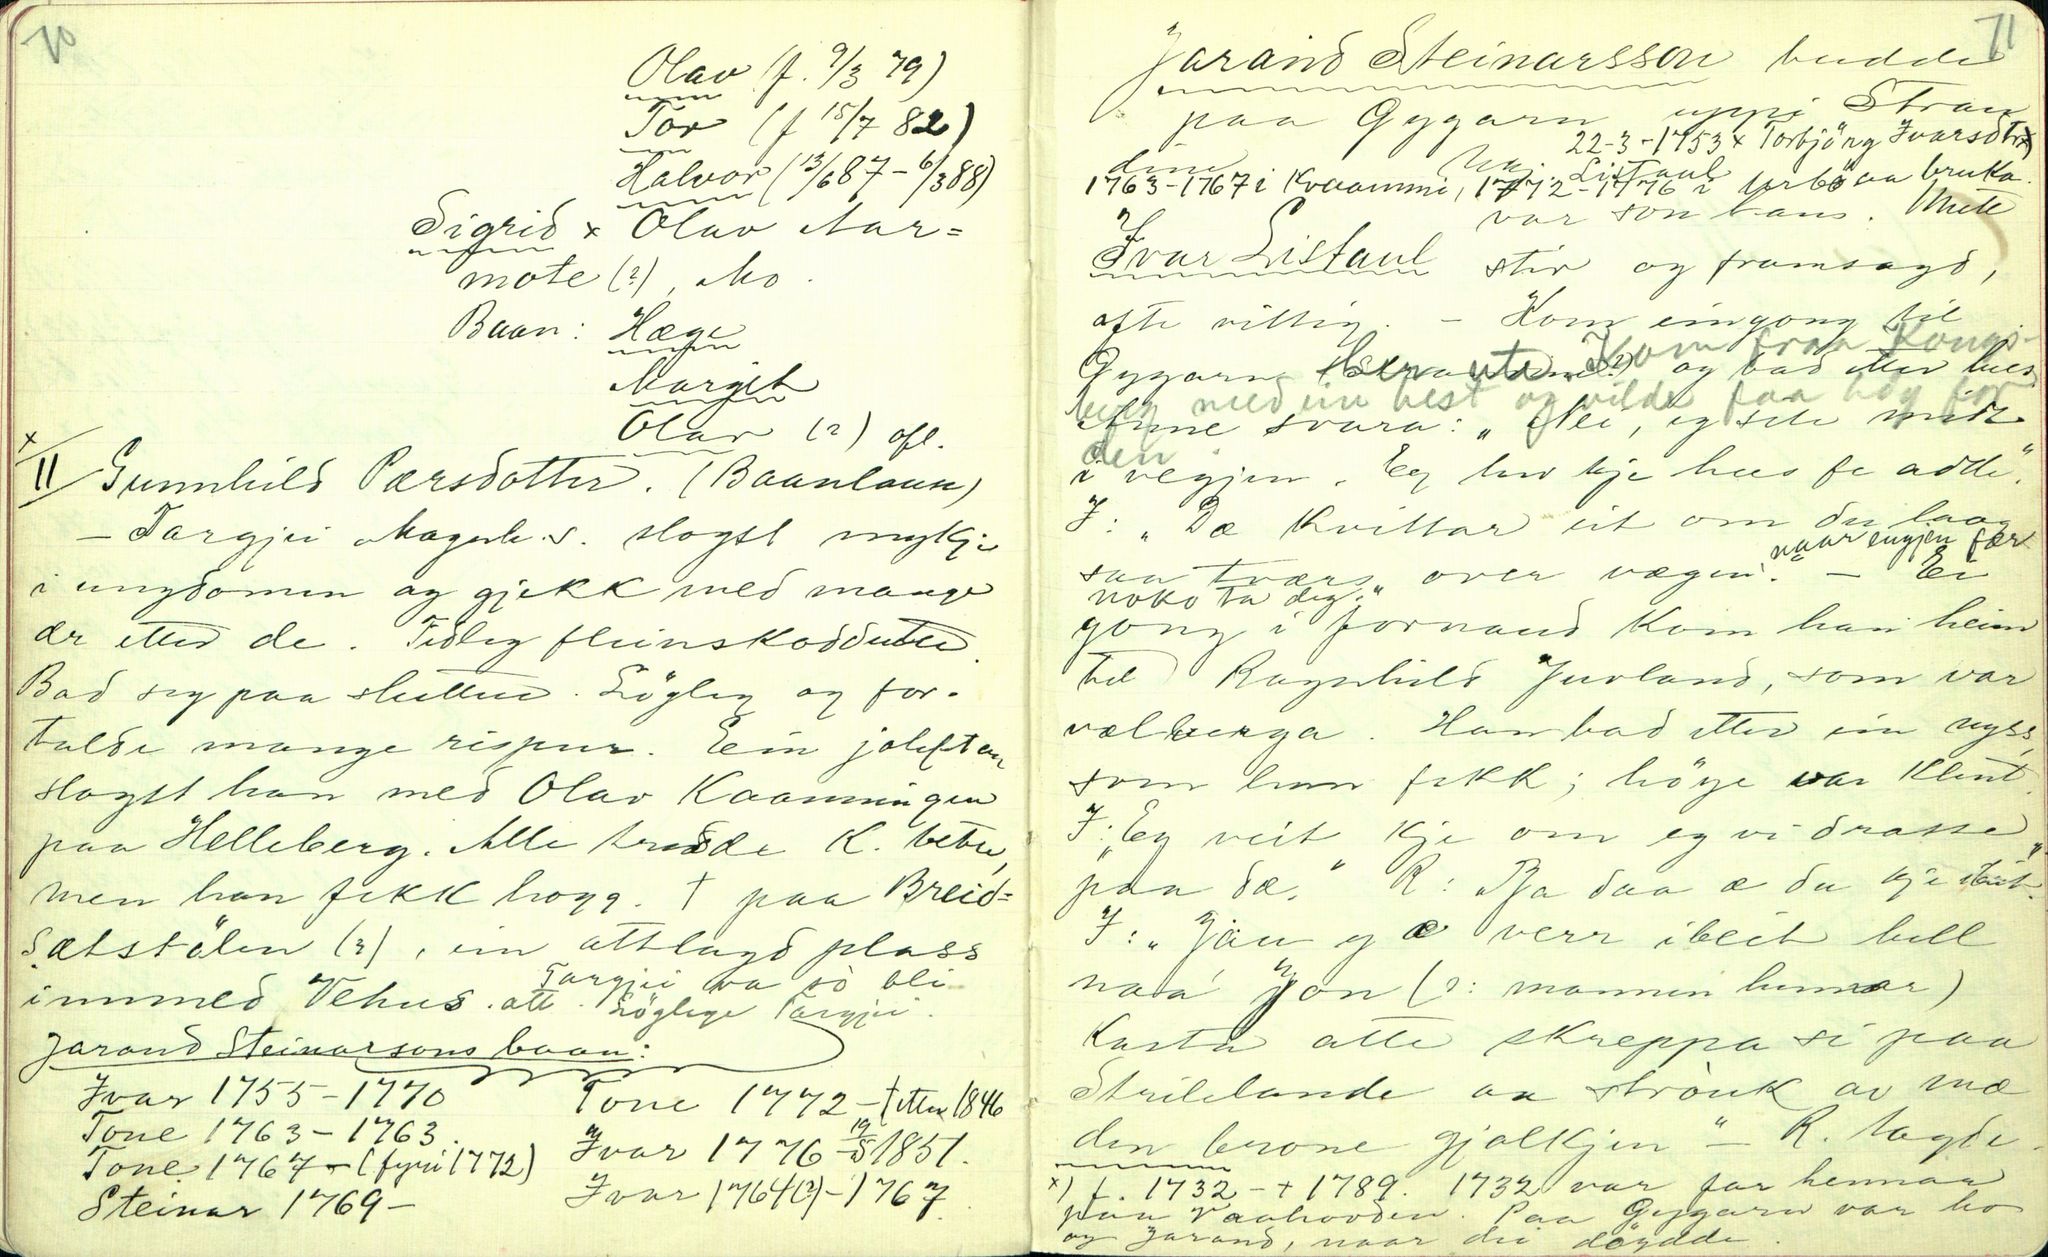 70
Olav (f. 9/3 79)
Tor (f 15/7 82)
Halvor (13/6 87 - 6/3 88)
Sigrid x Olav Aar=
mote (?), Mo.
Baan: Hæge
Margit
Olav (?) ofl.
x/
II/ Gunnhild Pærsdotter. (Baanlaus)
- Targjei Magnh. s. slogst mykje
i ungdomen og gjekk med mange
ær etter de. Tidleg fleinskoddutte.
Bad seg paa slutten. Löglig og for-
talde mange rispur. Ein joleftan
slogst han med Olav Kaamningen
paa Helleberg. Alle trudde K. betre,
men han fekk hogg. † paa Breid=
sætstölen (?), ein attlagd plass
innmed Vehus. Targjei va so bli
att. Löglige Targjei.
Jarand Steinarsons baan:
Ivar 1755 - 1770
Tone 1763 - 1763.
Tone 1767 - (fyri 1772)
Steinar 1769 -
Tone 1772 - † etter 1846
Ivar 1776 - 19/8 1851.
Ivar 1764(?) - 1767
71
Jarand Steinarsson budde
paa Gygarn uppi Stran
22-3-1753 x Torbjörg Ivarsdtr x)
dine Listaul
1763-1767 i Kvaammi, 1772-1776 i bruka.
var son hans. Mete
Ivar Listaul stir og framsagd,
ofte vittig. - Kom eingong til
Gygarn og bad etter hus.
Kom fraa Kongs-
berg med ein hest og vilde faa höy for
den
Anne svara: "Nei, eg sit midt
i vegjen. Eg hev kje hus fe adde".
I: "Dæ kvittar eit om du laag
saa tvers over vægen naar engjen fær
noko ta deg." - Ei
gong i fornaund kom han heim
til Ragnhild Juvland, som var
vælberga. Han bad etter ein nyss,
som han fekk; höye var klent.
I: "Eg veit kje om eg vi drasse
paa dæ." R: "Ja daa æ du kje ibeit."
I: "Jau eg æ verr ibeit hell
naá Jon (?: mannen hennar)
kasta atte skreppa si paa
Strilelande aa strouk av mæ
den brone gjelkjen" - R. tagde.
x) f. 1732 - † 1789. 1732 var far hennaa
paa Vaahovden. Paa Gygarn var ho
og Jarand, naar dei döydde.